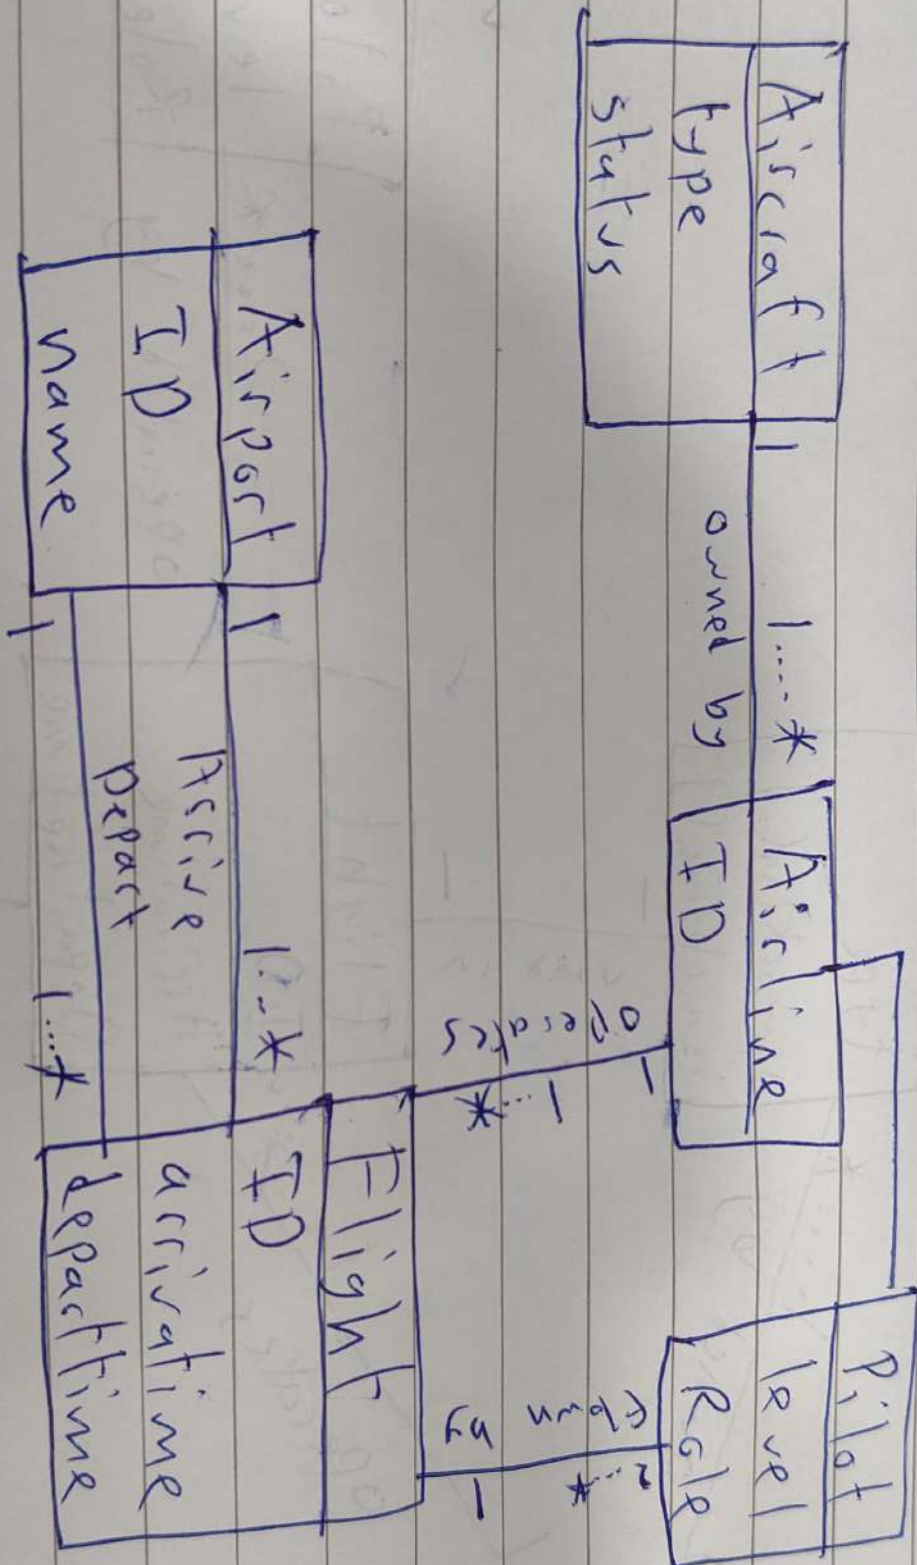 Aircraft
type
status
1
1....*
owned by
Airline
ID
Pilot
level
Role
1
operates
1...*
2...*
flown
by
1
Airport
ID
name
1
1...*
Arrive
Depart
1
1...*
Flight
ID
arrivatime
departtime